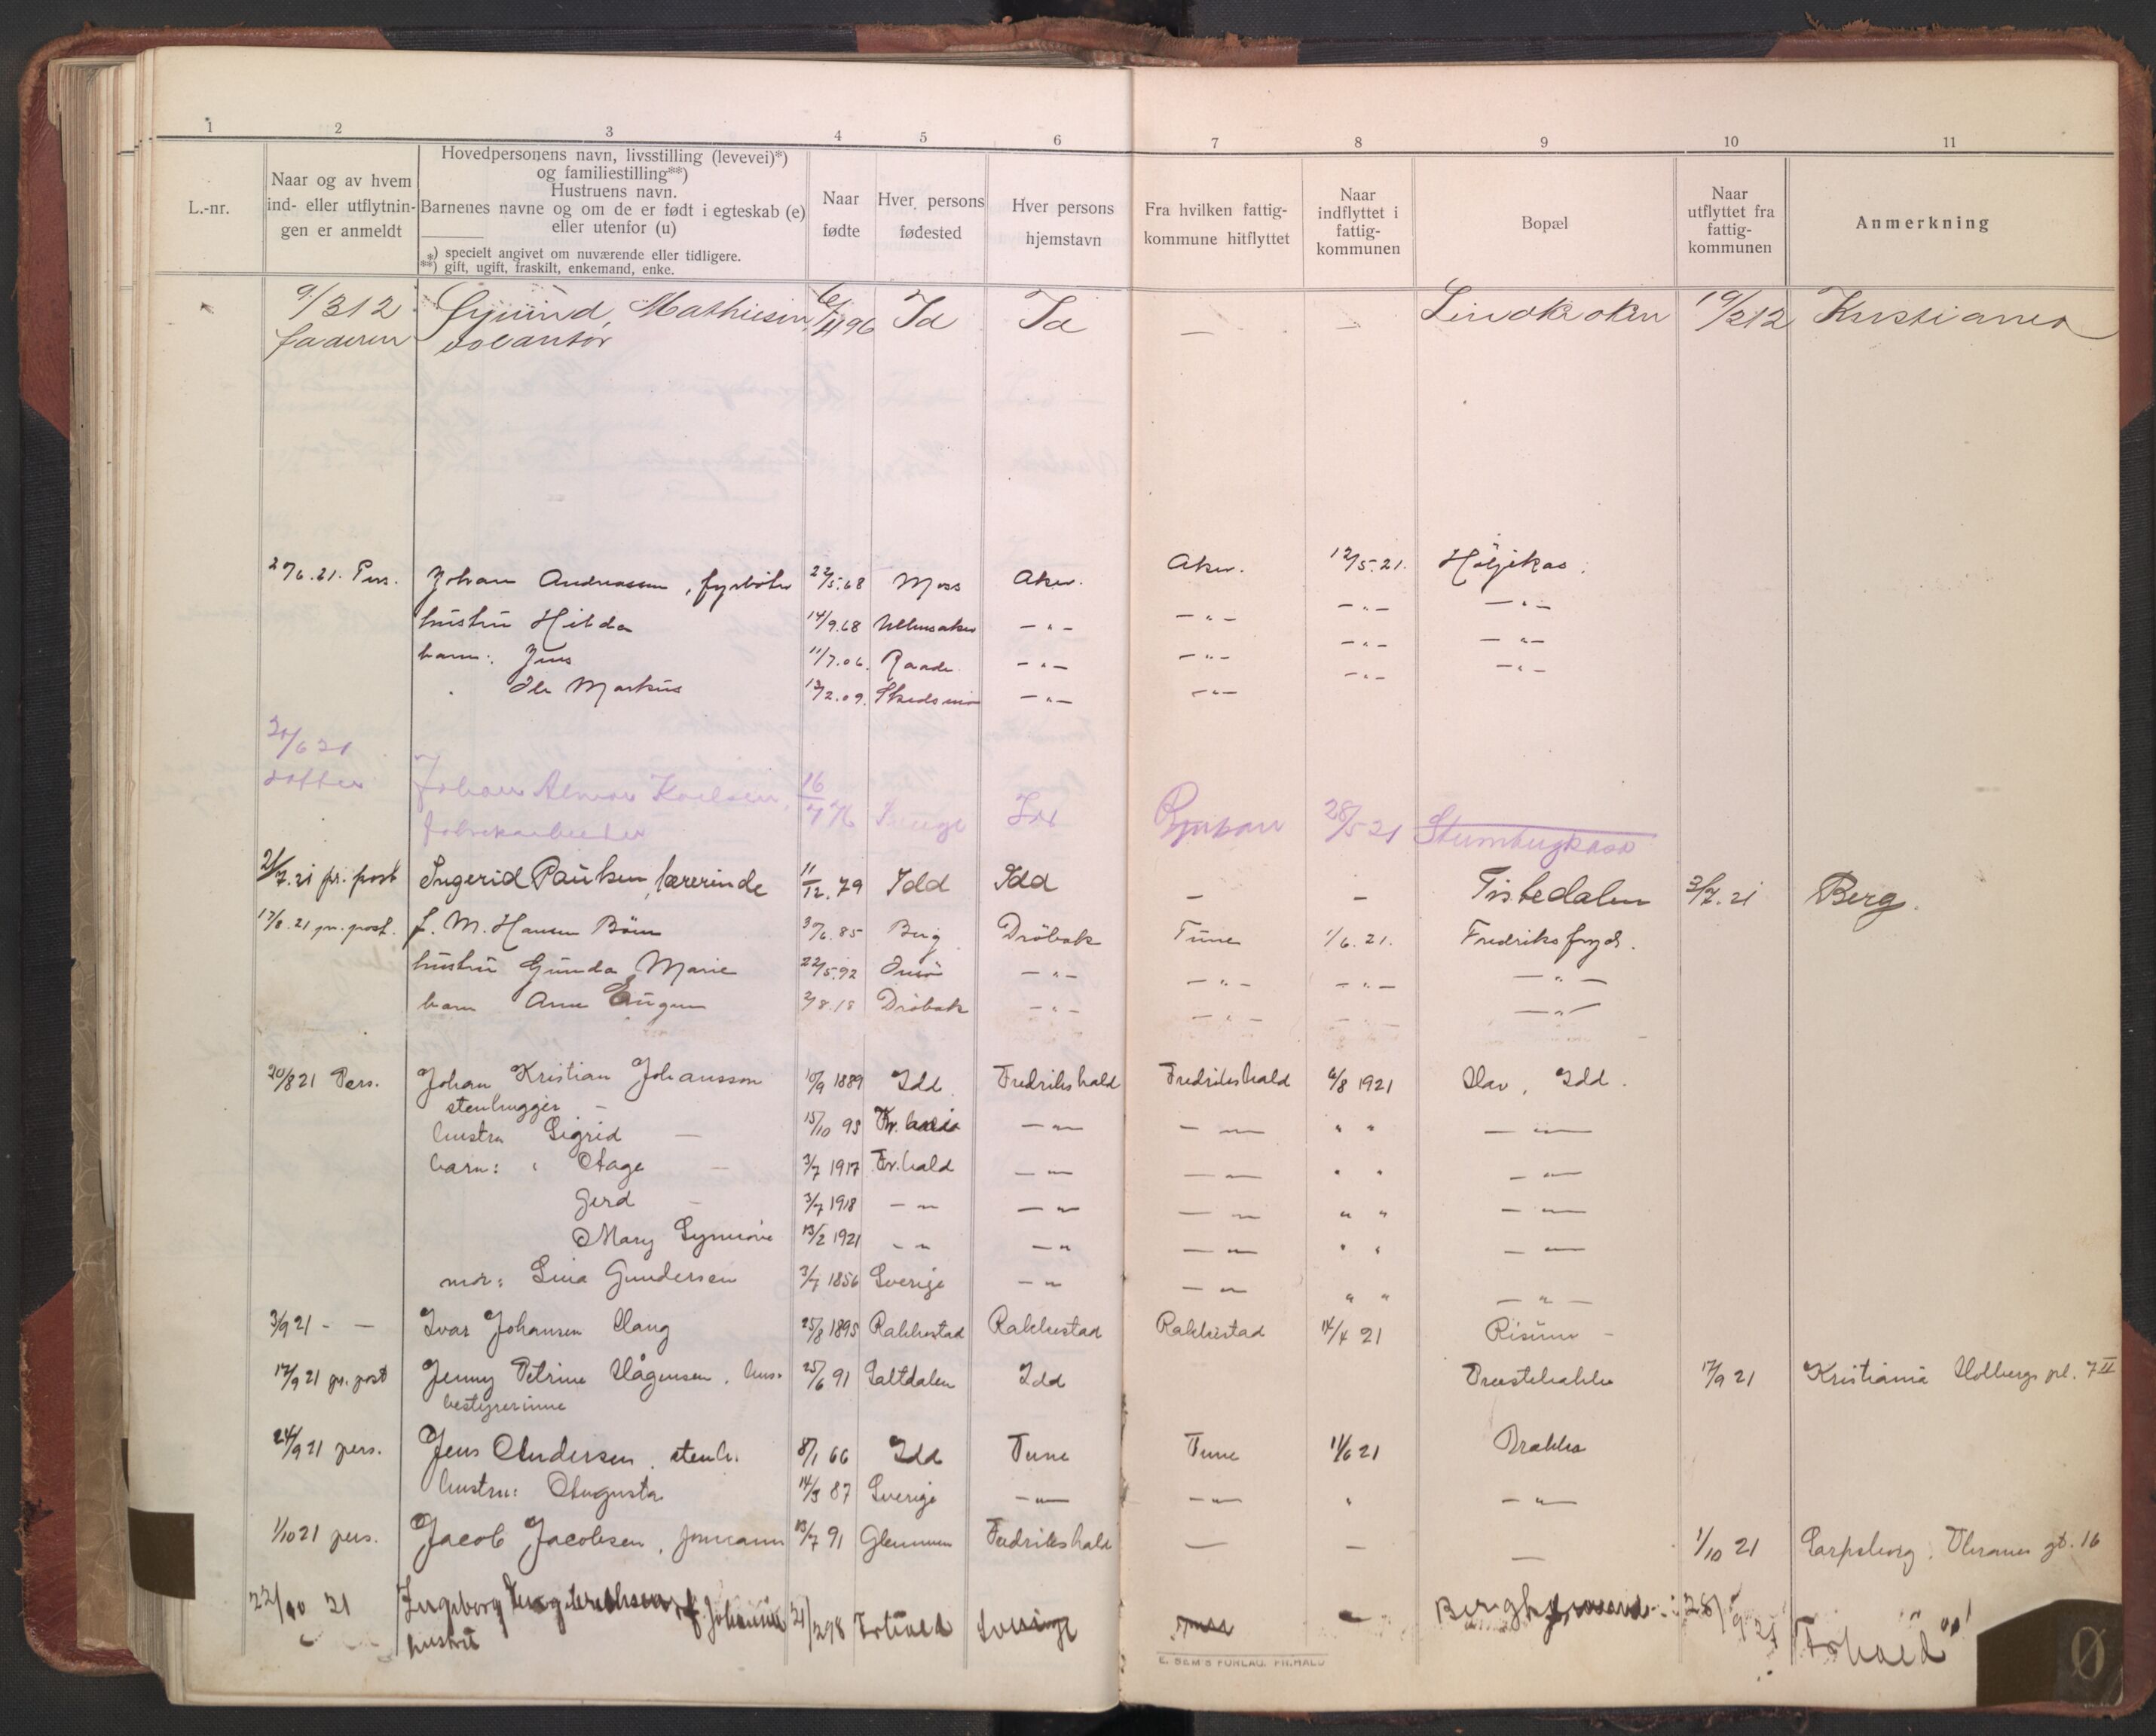 1 2 3 4 5 6 7 8 9 10 11
L.-nr.
Naar og av hvem
ind- eller utflytnin-
gen er anmeldt
Hovedpersonens navn, livsstilling (levevei)*)
og familiestilling**)
Hustruens navn.
Barnenes navne og om de er født i egteskab (e)
eller utenfor (u)
*) specielt angivet om nuværende eller tidligere.
**) gift, ugift, fraskilt, enkemand, enke.
Naar
fødte
Hver persons
fødested
Hver persons
hjemstavn
Fra hvilken fattig-
kommune hitflyttet
Naar
indflyttet i
fattig-
kommunen
Bopæl
Naar
utflyttet fra
fattig-
kommunen
Anmerkning
9/3 12 Mathiesen 6/11 96 Id Id — — Lindkoken 19/2 12 Kristiania
faderen
27/6.21. Pers. Johan Andreassen, fyrbøter 22/5.68 Moss Aker. Aker. 12/5.21. Höljekas.
hustru Hilda 14/9.68 Ullensaker —"— —"— —"— —"—
barn: Jens 11/7.06. Raade —"— —"— —"— —"—
Ole Markus 13/2.09. Skedsmo —"— —"— —"— —"—
21/6 21
datter Johan Karlsen, 16/7 76 Id Rjukan 28/5 21
fabrikarbeider
21/7.21 pr. post Ingerid Paulsen, lærerinde 11/12.79 Idd Idd — — Tistedalen 3/7.21 Berg.
17/8.21 pr. post. Hansen 30/6.85 Berg Dröbak Tune 1/6.21. Fredriksfryd.
hustru Gunda Marie 22/5.92 Onsö —"— —"— —"— —"—
barn Arne 2/8.18 Dröbak —"— —"— —"— —"—
20/8 21 Pers. Johan Kristian Johansson 10/9 1889 Idd Fredrikshald Fredrikshald 6/8 1921 Idd.
stenhugger —
hustru Sigrid — 15/10 95 —"— —"— " " —"—
barn: " Aage — 3/7 1917 Fr.hald —"— —"— " " —"—
Gerd — 3/7 1918 —"— —"— —"— " " —"—
Mary Synnöve 13/2 1921 —"— —"— —"— " " —"—
mor: Lina Gundersen 3/7 1856 Sverige —"— —"— " " —"—
3/9 21 - — Ivar Johansen Haug 25/8 1895 Rakkestad Rakkestad Rakkestad 14/4 21 Risum —
17/9 21 pr. post Jenny Petrine Hågensen, hus- 25/6 91 Saltdalen Idd Præstebakke 17/9 21 Kristiania Holbergs pl. 7 II
bestyrerinne
24/9 21 pers. Jens Andersen, stenh. 8/1 66 Idd Tune Tune 11/6 21 Brække
hustru: Augusta 14/3 87 Sverige —"— —"— " —"—
1/10 21 pers. Jacob Jacobsen, 13/7 91 Glemmen Fredrikshald — — — 1/10 21 Sarpsborg, gt. 16
22/10 21 Ingeborg 21/2 98 Frhald Sverige — 28/9 21 Frhald
hustru
E. SEM'S FORLAG. FR.HALD
Ø